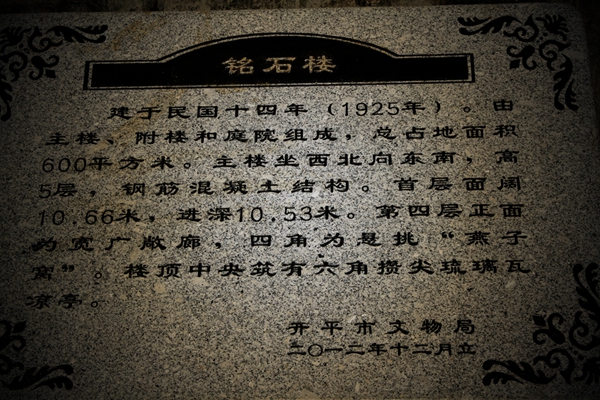 铭石楼
建于民国十四年（1925年）。由
主楼、附楼和庭院组成，总占地面积
600平方米。主楼坐西北向东南，高
5层，钢筋混凝土结构。首层面阔
10.66米，进深10.53米。第四层正面
为宽广敞廊，四角为悬挑“燕子
窝”。楼顶中央筑有六角攒尖琉璃瓦
凉亭。
开平市文物局
二〇一二年十二月立